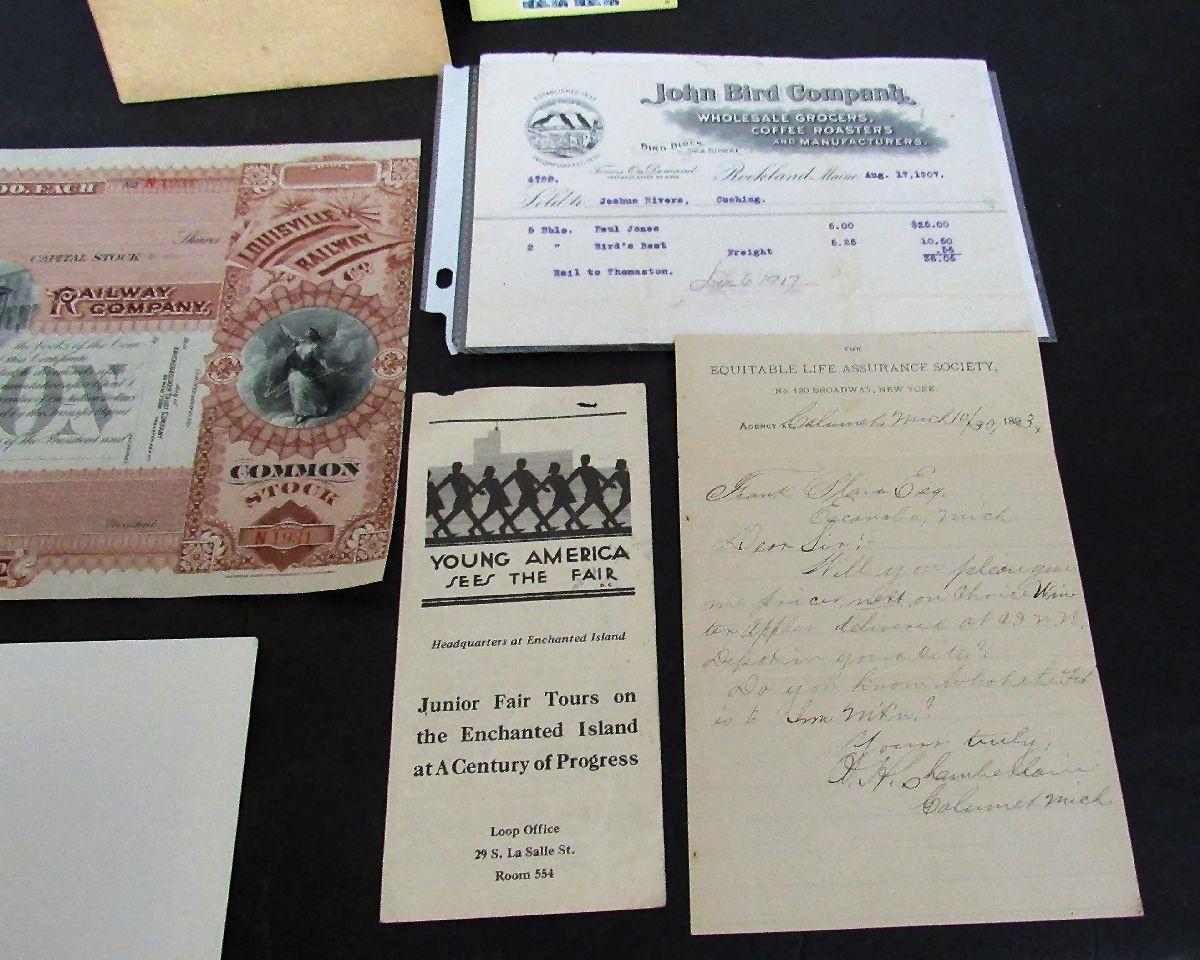 John Bird Company,
WHOLESALE GROCERS,
COFFEE ROASTERS
AND MANUFACTURERS.
ESTABLISHED 1832
INCORPORATED
BIRD BLOCK,
SEA STREET
Terms On Demand
4799. Rockland, Maine Aug. 17,1907.
Sold to Joshua Rivers, Cushing.
5 Bbls. Paul Jones 5.00 $25.00
2 " Bird's Best 5.25 10.50
Freight .55
36.05
Rail to Thomaston.
00. EACH
N 1931
Shares
CAPITAL STOCK
RAILWAY
COMPANY,
LOUISVILLE
RAILWAY
CO
COMMON
STOCK
President
N 1931
YOUNG AMERICA
SEES THE FAIR
Headquarters at Enchanted Island
Junior Fair Tours on
the Enchanted Island
at A Century of Progress
Loop Office
29 S. La Salle St.
Room 554
THE
EQUITABLE LIFE ASSURANCE SOCIETY,
No 120 BROADWAY, NEW YORK.
AGENCY Calumet Mich 10/30, 1883,
Frank Esq.
Escanaba, Mich
Dear Sir:-
Will you please give
me prices, nett, on Choice Win
ter Apples delivered at N.
Depot in your City?
Do you know what the
is to
Yours truly,
Chamberlain
Calumet Mich